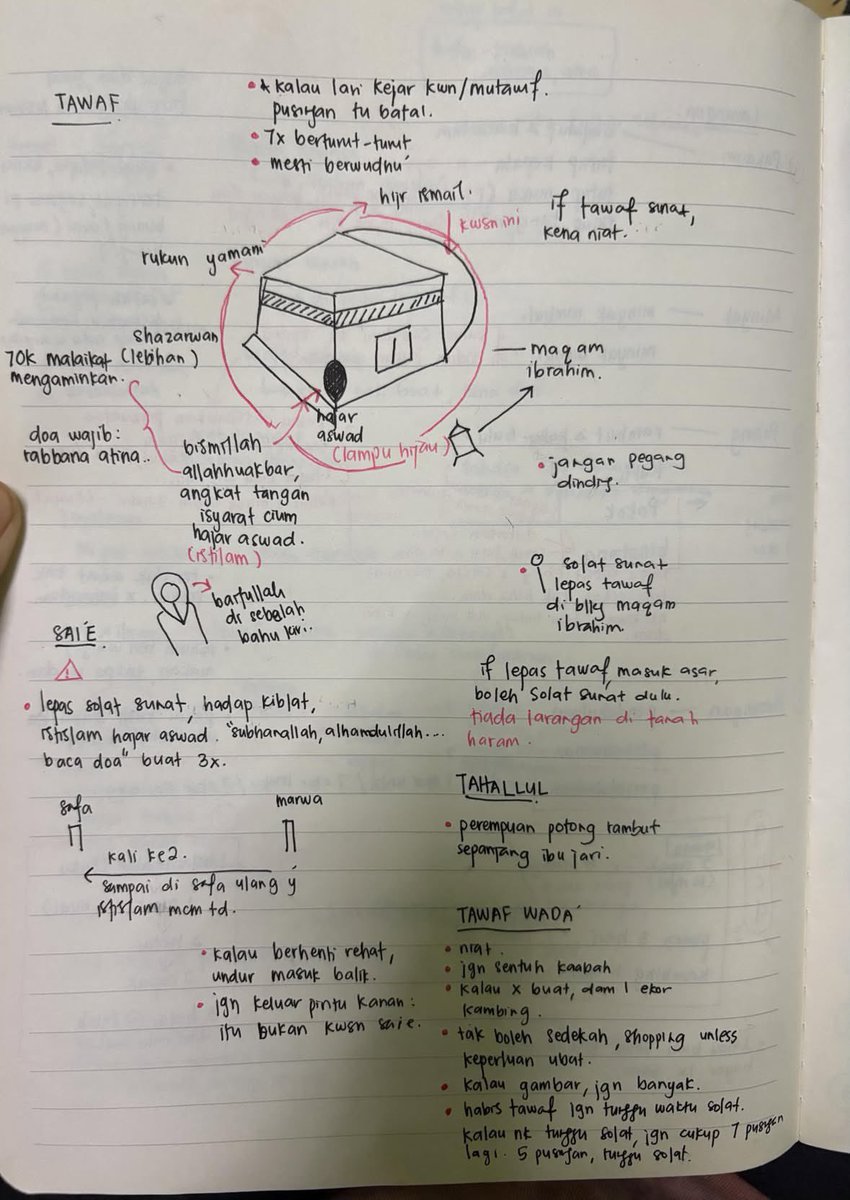 TAWAF
• * kalau lari kejar kwn/mutawif.
pusingan tu batal.
• 7x berturut-turut
• mesti berwudhu'
hijr ismail.
kwsn ini
if tawaf sunat,
kena niat.
rukun yamani
shazarwan
(lebihan)
70k malaikat
mengaminkan.
maqam
ibrahim.
hajar
aswad
(lampu hijau)
doa wajib:
rabbana atina..
bismillah
allahhuakbar,
angkat tangan
isyarat cium
hajar aswad.
(istilam)
• jangan pegang
dinding.
• solat sunat
lepas tawaf
di blkg maqam
ibrahim.
baitullah
di sebelah
bahu kiri..
SAI'E
!
• lepas solat sunat, hadap kiblat,
istislam hajar aswad. "subhanallah, alhamdulillah...
baca doa" buat 3x.
if lepas tawaf, masuk asar,
boleh solat sunat dulu.
tiada larangan di tanah
haram.
safa
marwa
kali ke2.
sampai di safa ulang y
istislam mcm td.
TAHALLUL
• perempuan potong rambut
sepanjang ibu jari.
• kalau berhenti rehat,
undur masuk balik.
• jgn keluar pintu kanan:
itu bukan kwsn saie.
TAWAF WADA'
• niat.
• jgn sentuh kaabah
• kalau x buat, dam 1 ekor
kambing.
• tak boleh sedekah, shopping unless
keperluan ubat.
• kalau gambar, jgn banyak.
• habis tawaf jgn tunggu waktu solat.
kalau nk tunggu solat, jgn cukup 7 pusingan
lagi. 5 pusingan, tunggu solat.